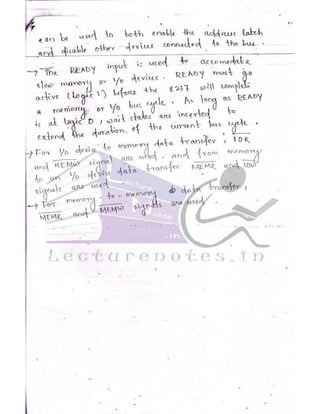 can be used to both enable the address latch
and disable other devices connected to the bus.
→ The READY input is used to accomodate
slow memory or I/O devices. READY must go
active (Logic 1) before the 8237 will complete
a memory or I/O bus cycle. As long as READY
is at logic 0, wait states are inserted to
extend the duration of the current bus cycle.
→ For I/O device to memory data transfer, IOR
and MEMW signal are used. and from memory
to an I/O device data transfer MEMR and IOW
signals are used.
→ For memory-to-memory data transfer,
MEMR and MEMW signals are used.
Lecturenotes.in